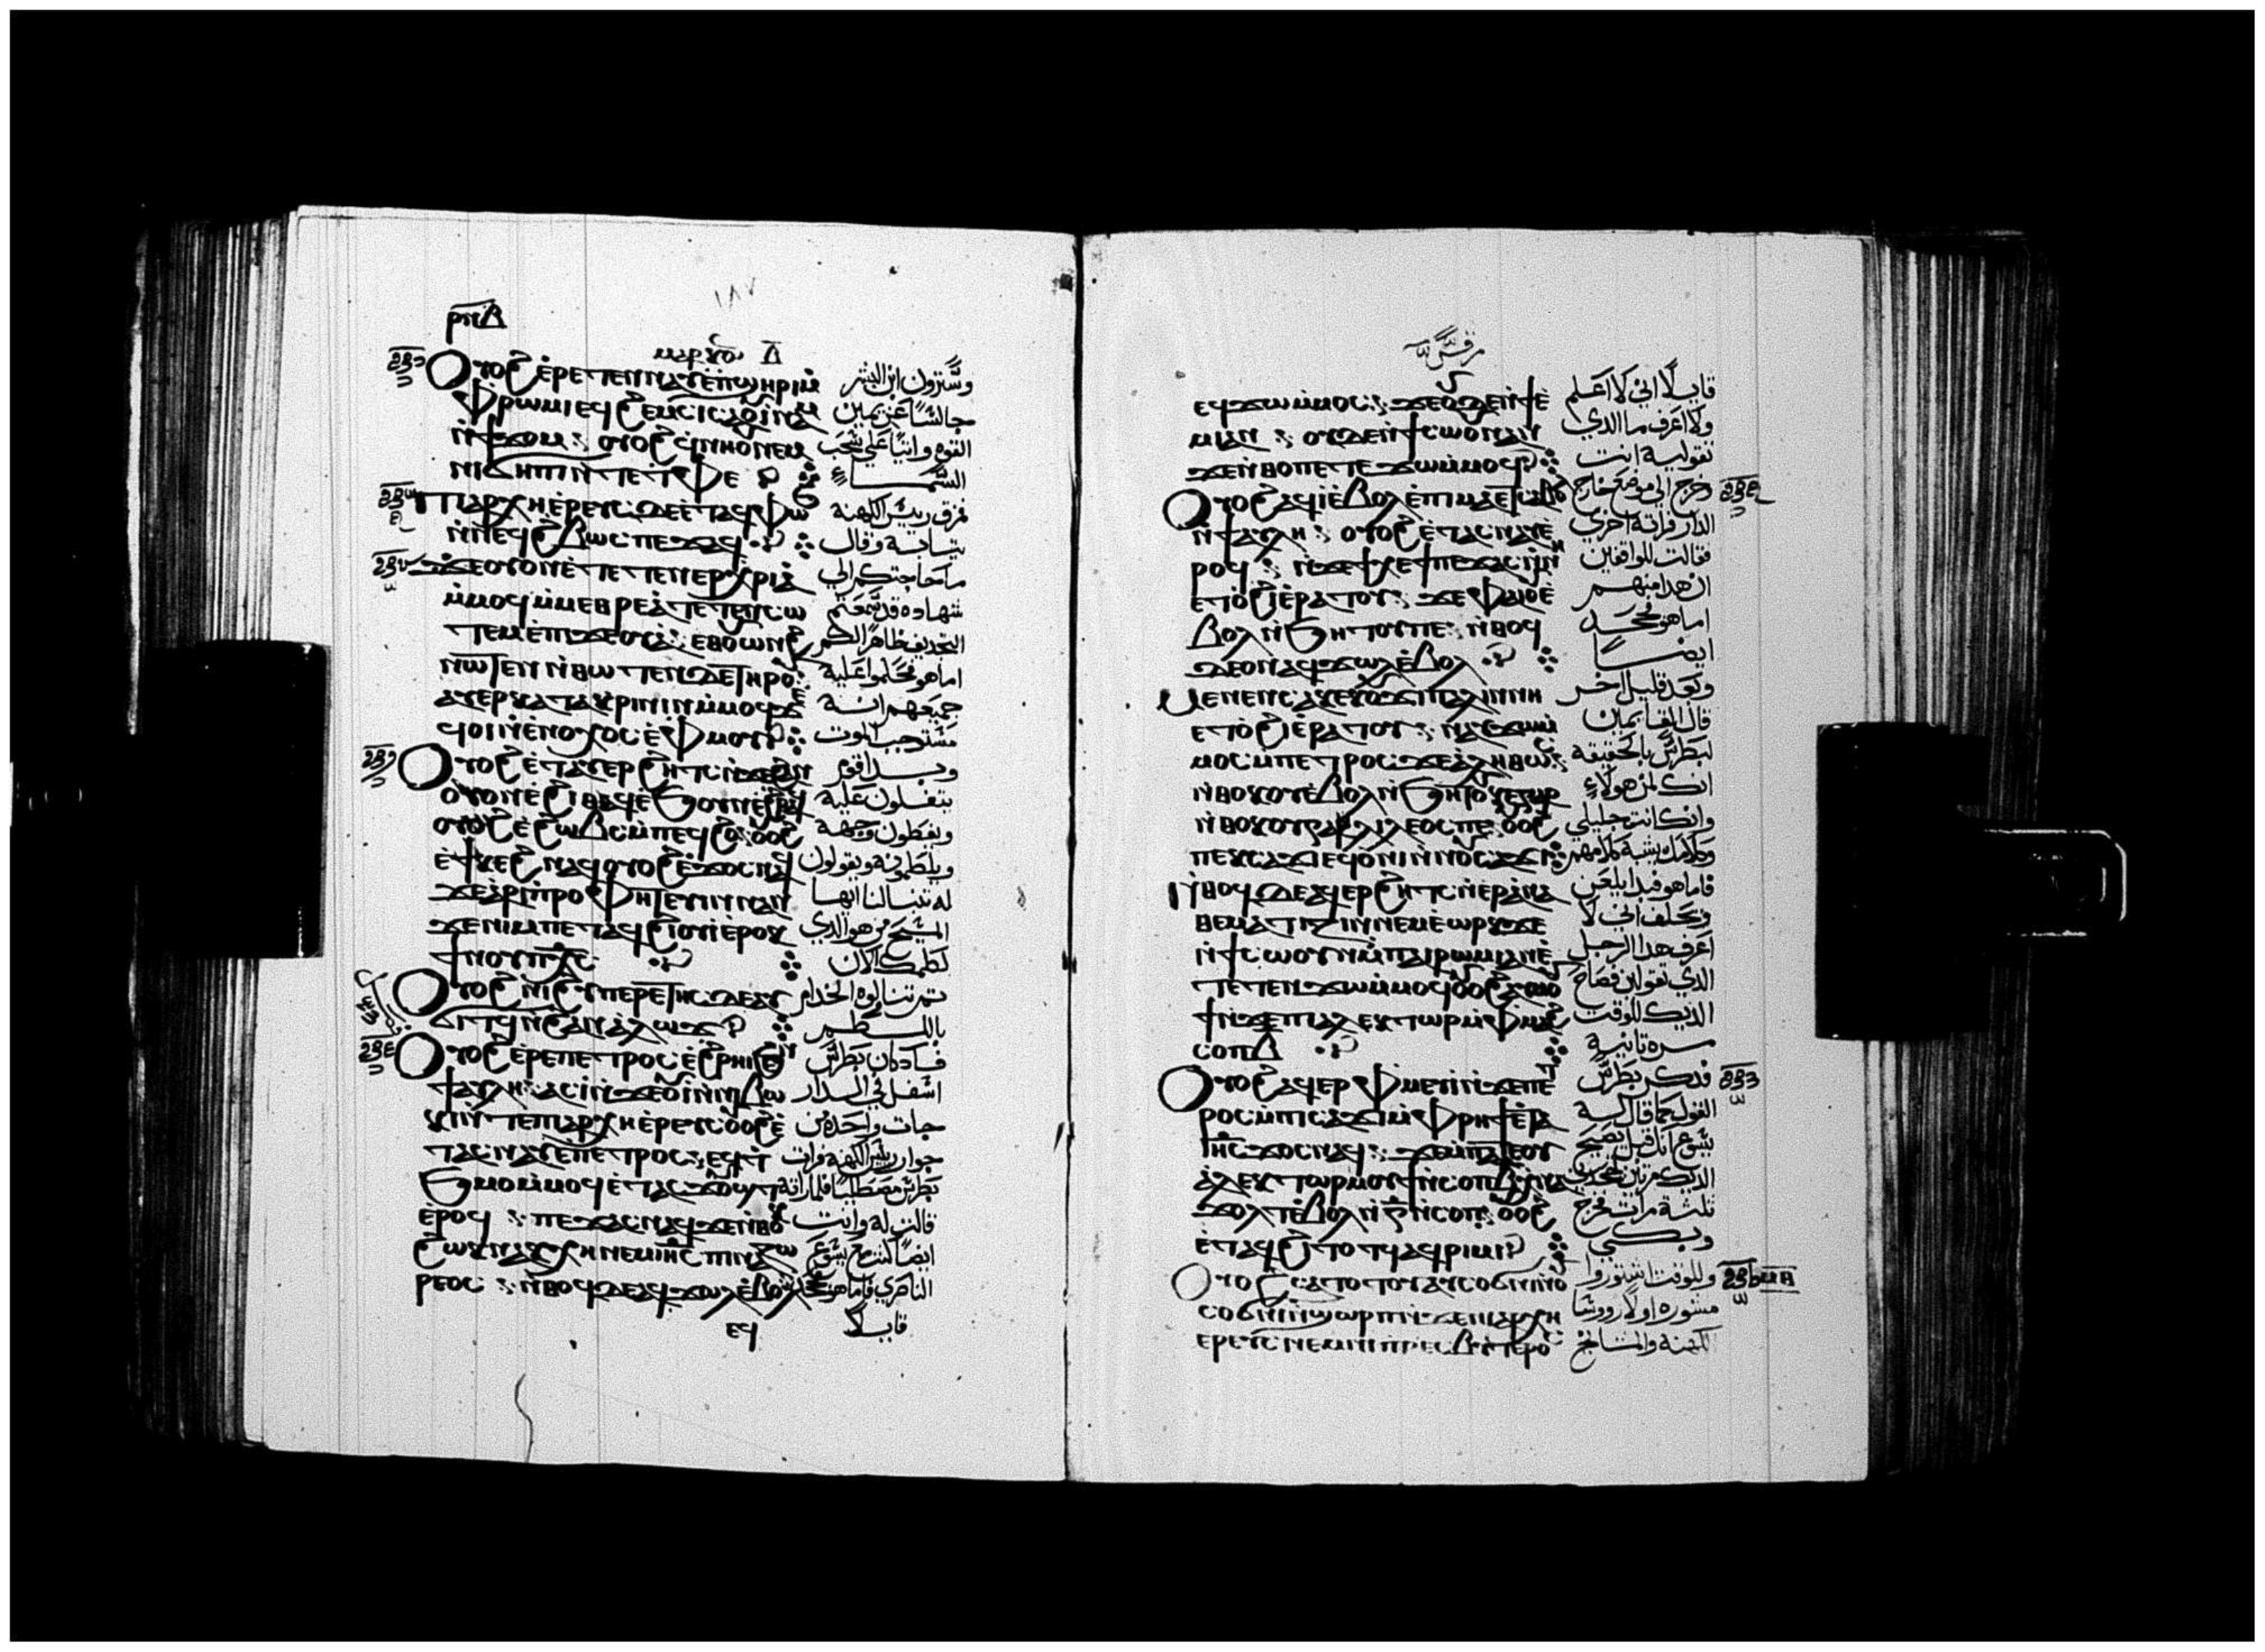 ١٨٧
ⲣⲡⲇ
ⲙⲁⲣⲕⲟⲛ ⲇ̅
ⲟⲩⲟϩ ⲉ̀ⲣⲉⲧⲉⲛⲛⲁⲩ ⲉ̀ⲡϣⲏⲣⲓ ⲙ̀ وتنزون ابن البشر
ⲫⲣⲱⲙⲓ ⲉϥϩⲉⲙⲥⲓ ⲥⲁⲟⲩⲓ̀ⲛⲁⲙ جالسًا عن يمين
ⲛ̀ϯϫⲟⲙ ⲟⲩⲟϩ ⲉϥⲛⲏⲟⲩ ⲛⲉⲙ القوه واتيًا علي سحب
ⲛⲓϭⲏⲡⲓ ⲛ̀ⲧⲉ ⲧ̀ⲫⲉ السماء
ⲡⲓⲁⲣⲭⲏⲉ̀ⲣⲉⲩⲥ ⲇⲉ ⲉ̀ⲧⲁϥⲫⲱϧ فمزق رييس الكهنة
ⲛ̀ⲛⲉϥϩ̀ⲃⲱⲥ ⲡⲉϫⲁϥ تيابه وقال
ϫⲉ ⲟⲩ ⲟⲛ ⲡⲉ ⲧⲉⲧⲉⲛⲉⲣⲭⲣⲓⲁ̀ ما حاجتكم الي
ⲙ̀ⲙⲟϥ ⲙ̀ⲙⲉⲑⲣⲉ ⲁ̀ⲧⲉⲧⲉⲛⲥⲱ شهاده قد سمعتم
ⲧⲉⲙ ⲉ̀ⲡⲓϫⲉⲟⲩⲁ̀ ⲉⲑⲟⲩⲱⲛϩ التجديف ظاهرًا لكم
ⲛⲱⲧⲉⲛ ⲛ̀ⲑⲱⲧⲉⲛ ⲇⲉ ⲧⲏⲣⲟⲩ اما هم فحكموا عليه
ⲁⲩⲉⲣⲕⲁⲧⲁⲕⲣⲓⲛⲓⲛ ⲙ̀ⲙⲟϥ ϫⲉ جميعهم انه
ϥ̀ⲟⲓ ⲛ̀ⲉⲛⲟⲭⲟⲥ ⲉ̀ⲫⲙⲟⲩ مستوجب الموت
ⲟⲩⲟϩ ⲉ̀ⲧⲁⲩⲉⲣϩⲏⲧⲥ ⲛ̀ϫⲉ ϩⲁⲛ وبدا قوم
ⲟⲩⲟⲛ ⲉ̀ϩⲓⲑⲁϥ ⲉ̀ϧⲟⲩⲛ ⲉ̀ϩⲣⲁϥ يتفلون عليه
ⲟⲩⲟϩ ⲉ̀ϩⲱⲃⲥ ⲙ̀ⲡⲉϥϩⲟ ⲟⲩⲟϩ ويغطون وجهه
ⲉ̀ϯⲕⲉϩ ⲛⲁϥ ⲟⲩⲟϩ ⲉ̀ϫⲟⲥ ⲛⲁϥ ويلطمونه ويقولون
ϫⲉ ⲁ̀ⲣⲓⲡ̀ⲣⲟⲫⲏⲧⲉⲩⲓⲛ ⲛⲁⲛ له تنبا لنا ايها
ϫⲉ ⲛⲓⲙ ⲡⲉⲧⲁϥϩⲓⲟⲩⲓ̀ ⲉ̀ⲣⲟⲕ المسيح من هو الذي
ϯⲛⲟⲩ ⲡⲭ̅ⲥ̅ لطمك الان
ⲟⲩⲟϩ ⲛⲓϩⲩⲡⲉⲣⲉⲧⲏⲥ ⲇⲉ ⲁⲩ
ϭⲓⲧϥ ⲛ̀ϩⲁⲛⲁ̀ⲗⲱϫ باللطم
ⲟⲩⲟϩ ⲉ̀ⲣⲉ ⲡⲉⲧⲣⲟⲥ ⲉ̀ϧⲣⲏⲓ ϧⲉⲛ فاد كان بطرس
ϯⲁⲩⲗⲏ ⲁⲥⲓ̀ ⲛ̀ϫⲉ ⲟⲩⲓ̀ ⲛ̀ⲛⲓⲃⲱ اسفل في الدار
ⲕⲓ ⲛ̀ⲧⲉ ⲡⲓⲁⲣⲭⲏⲉ̀ⲣⲉⲩⲥ ⲟⲩⲟϩ ⲉ̀ جات واحده من
ⲧⲁⲥⲛⲁⲩ ⲉ̀ⲡⲉⲧⲣⲟⲥ ⲉϥϧ جوار رييس الكهنه فرات
ϧⲙⲟⲙ ⲙ̀ⲙⲟϥ ⲉ̀ⲧⲁⲥϫⲟⲩϣⲧ بطرس مصطليًا فلما راته
ⲉ̀ⲣⲟϥ ⲡⲉϫⲁⲥ ⲛⲁϥ ϫⲉ ⲛ̀ⲑⲟⲕ قالت له وانت
ϩⲱⲕ ⲛⲁⲕⲭⲏ ⲛⲉⲙ ⲓⲏ̅ⲥ̅ ⲡⲓⲛⲁⲍⲱ ايضًا كنت مع يسوع
ⲣⲉⲟⲥ ⲛ̀ⲑⲟϥ ⲇⲉ ⲁϥϫⲱⲗ ⲉ̀ⲃⲟⲗ الناصري فاما هو فجحد
ⲉϥ قايلًا
مرقس
ⲉϥϫⲱ ⲙ̀ⲙⲟⲥ ϫⲉ ⲟⲩⲇⲉ ⲛ̀ϯⲉ̀ قايلًا اني لا اعلم
ⲙⲓ ⲁⲛ ⲟⲩⲇⲉ ⲛ̀ϯⲥⲱⲟⲩⲛ ⲁⲛ ولا اعرف ما الدي
ϫⲉ ⲛ̀ⲑⲟ ⲡⲉⲧⲉϫⲱ ⲙ̀ⲙⲟϥ تقوليه انت
ⲟⲩⲟϩ ⲁϥⲓ̀ ⲉ̀ⲃⲟⲗ ⲉ̀ⲡⲓⲙⲁ ⲉⲧⲥⲁⲃⲟⲗ وخرج الي موضع خارج
ⲛ̀ϯⲁⲩⲗⲏ ⲟⲩⲟϩ ⲉ̀ⲧⲁⲥⲛⲁⲩ ⲉ̀ الدار فراته اخري
ⲣⲟϥ ⲛ̀ϫⲉ ϯⲭⲉϯ ⲡⲉϫⲁⲥ ⲛ̀ⲛⲏ فقالت للواقفين
ⲉⲧⲟ̀ϩⲓ ⲉ̀ⲣⲁⲧⲟⲩ ϫⲉ ⲫⲁⲓ ⲟⲩⲉ̀ ان هدا منهم
ⲃⲟⲗ ⲛ̀ϧⲏⲧⲟⲩ ⲡⲉ ⲛ̀ⲑⲟϥ اما هو فجحد
ⲇⲉ ⲟⲛ ⲁϥϫⲱⲗ ⲉ̀ⲃⲟⲗ ايضًا
ⲙⲉⲛⲉⲛⲥⲁ ⲕⲉⲕⲟⲩϫⲓ ⲡⲁⲗⲓⲛ ⲛⲏ وبعد قليل اخر
ⲉⲧⲟ̀ϩⲓ ⲉ̀ⲣⲁⲧⲟⲩ ⲛⲁⲩϫⲱ ⲙ̀ قال القايمين
ⲙⲟⲥ ⲙ̀ⲡⲉⲧⲣⲟⲥ ϫⲉ ⲁ̀ⲗⲏⲑⲱⲥ لبطرس بالحقيقه
ⲛ̀ⲑⲟⲕ ⲟⲩⲉ̀ⲃⲟⲗ ⲛ̀ϧⲏⲧⲟⲩ ⲕⲉ ⲅⲁⲣ انك لمن هولاء
ⲛ̀ⲑⲟⲕ ⲟⲩⲅⲁⲗⲓⲗⲉⲟⲥ ⲡⲉ ⲟⲩⲟϩ وانك انت جليلي
ⲡⲉⲕⲥⲁϫⲓ ⲉϥⲟ̀ⲛⲓ وكلامك يشبه كلامهم
ⲛ̀ⲑⲟϥ ⲇⲉ ⲁϥⲉⲣϩⲏⲧⲥ ⲛ̀ⲉⲣⲁ̀ⲛⲁ فاما هو فبدا يلعن
ⲑⲉⲙⲁⲧⲓⲍⲓⲛ ⲛⲉⲙ ⲉ̀ⲱⲣⲕ ϫⲉ ويحلف اني لا
ⲛ̀ϯⲥⲱⲟⲩⲛ ⲙ̀ⲡⲁⲓⲣⲱⲙⲓ ⲁⲛ ⲉ̀ اعرف هدا الرجل
ⲧⲉⲧⲉⲛϫⲱ ⲙ̀ⲙⲟϥ ⲟⲩⲟϩ الدي تقولون فصاح
ϯ ⲛ̀ϫⲉ ⲡⲓⲁⲗⲉⲕⲧⲱⲣ ⲙ̀ⲫⲙⲁϩ الديك للوقت
ⲥⲟⲡ ⲃ̅ مره تانيه
ⲟⲩⲟϩ ⲁϥⲉⲣⲫⲙⲉⲩⲓ̀ ⲛ̀ϫⲉ ⲡⲉⲧ فدكر بطرس
ⲣⲟⲥ ⲙ̀ⲡⲓⲥⲁϫⲓ ⲙ̀ⲫⲣⲏϯ ⲉ̀ⲧⲁ القول كما قال له
ⲓⲏ̅ⲥ̅ ϫⲟⲥ ⲛⲁϥ ϫⲉ ⲙ̀ⲡⲁⲧⲉ ⲟⲩ يسوع انك قبل يصيح
ⲁ̀ⲗⲉⲕⲧⲱⲣ ⲙⲟⲩϯ ⲛ̀ⲥⲟⲡ ⲃ̅ الديك مرتين تجحدني
ϫⲟⲗⲧ ⲉ̀ⲃⲟⲗ ⲛ̀ⲅ̅ ⲛ̀ⲥⲟⲡ ⲟⲩⲟϩ تلتة مرات فخرج
ⲉ̀ⲧⲁϥϩⲓⲧⲟⲧϥ ⲁϥⲣⲓⲙⲓ وبكي
ⲟⲩⲟϩ ⲥⲁⲧⲟⲧⲟⲩ ⲁⲩⲥⲟϭⲛⲓ ⲛ̀ⲟ وللوقت استوروا
ⲥⲟϭⲛⲓ ⲛ̀ϣⲱⲣⲡ ⲛ̀ϫⲉ ⲛⲓⲁⲣⲭⲏ مشوره اولًا رووسا
ⲉⲣⲉⲩⲥ ⲛⲉⲙ ⲛⲓⲡⲣⲉⲥⲃⲩⲧⲉⲣⲟⲥ الكهنة والمشايخ